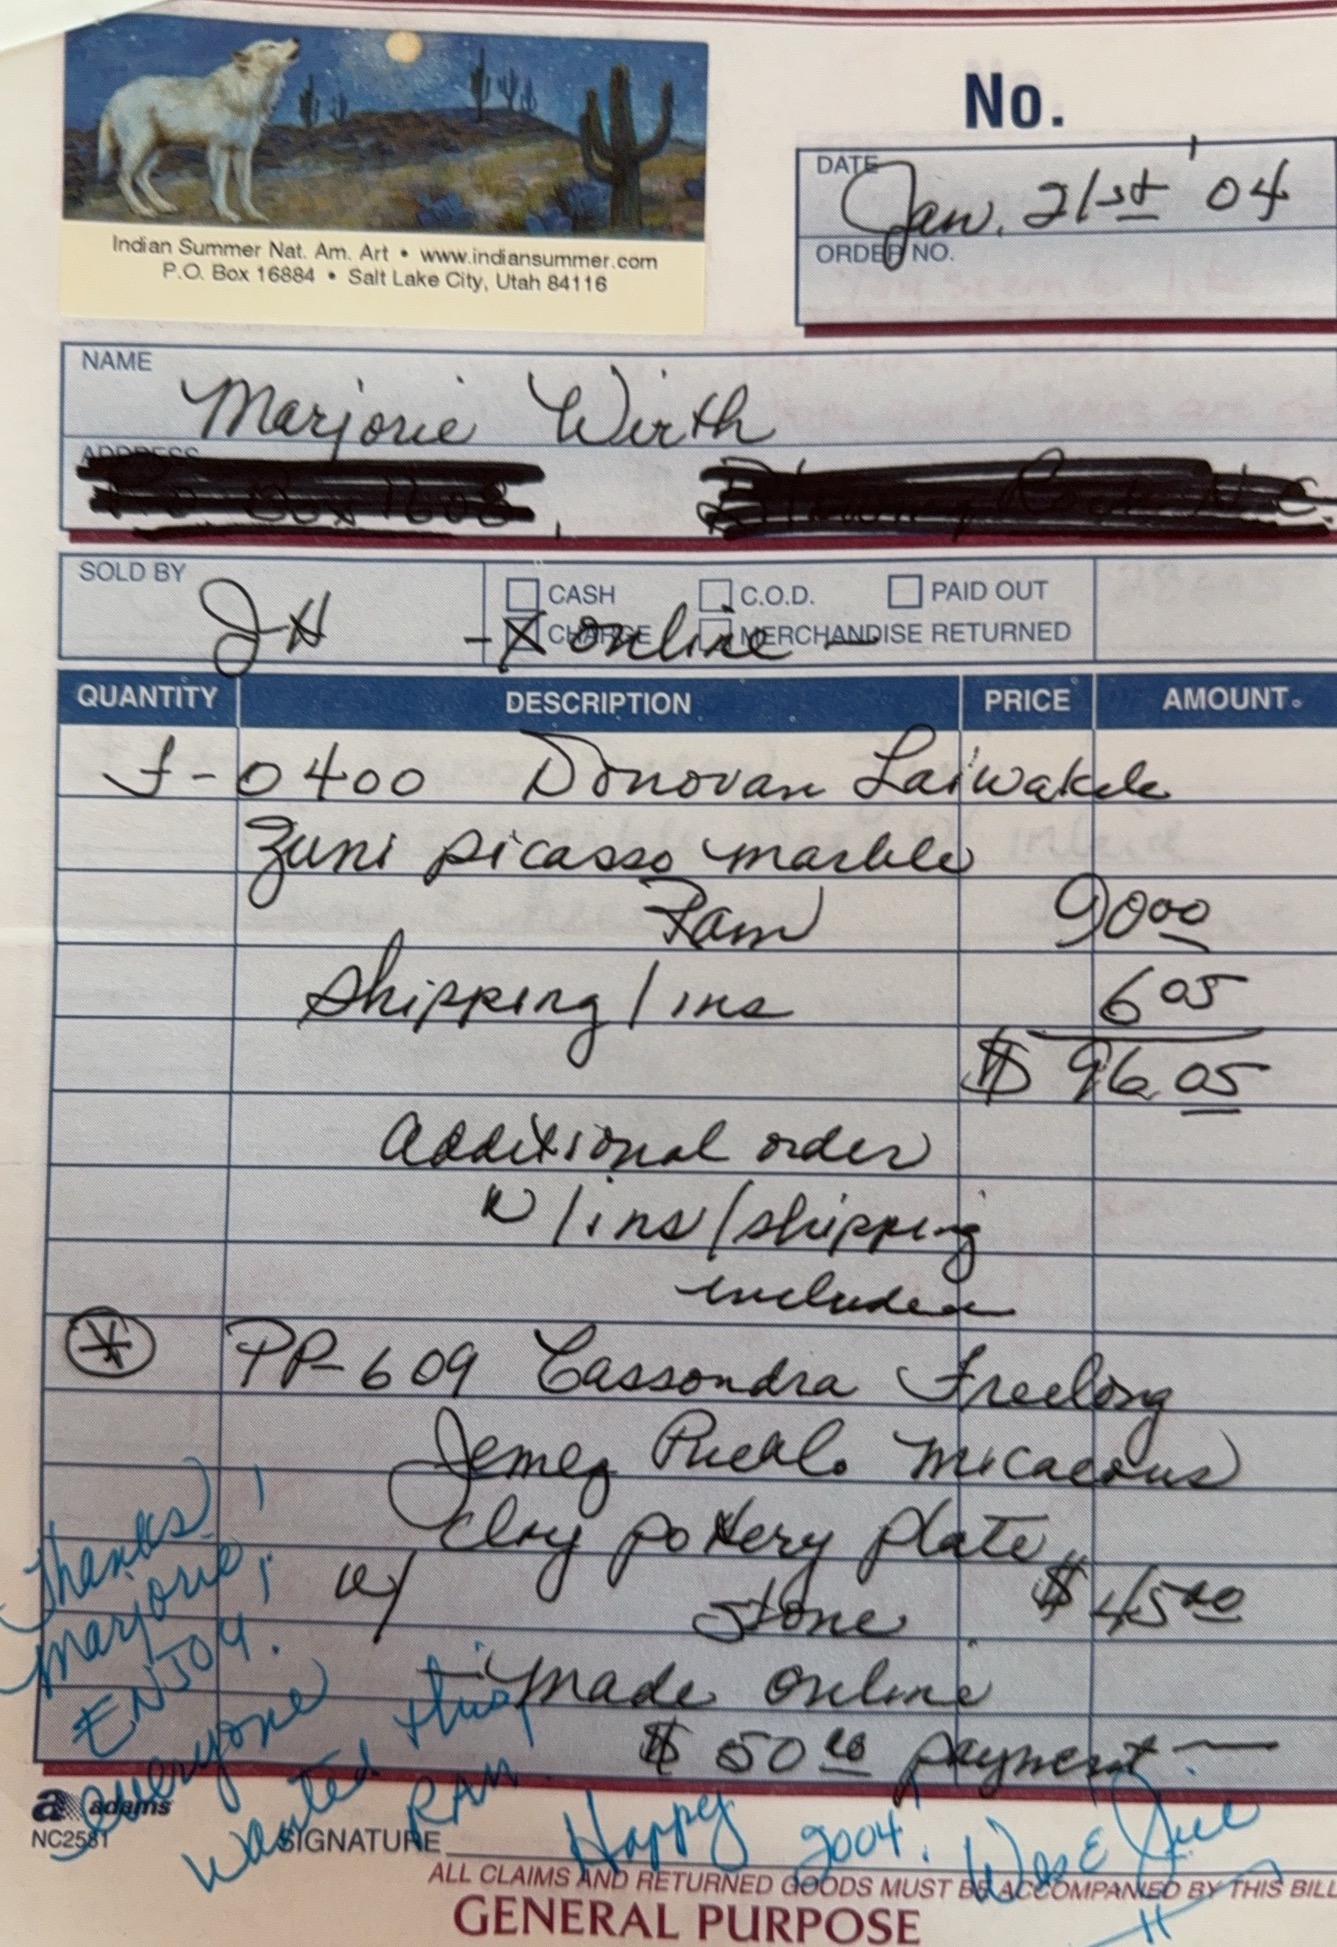 No.
DATE
Jan. 21st '04
ORDER NO.
Indian Summer Nat. Am. Art • www.indiansummer.com
P.O. Box 16884 • Salt Lake City, Utah 84116
NAME
Marjorie Wirth
ADDRESS
SOLD BY
JH
CASH C.O.D. PAID OUT
CHARGE MERCHANDISE RETURNED
- X online -
QUANTITY DESCRIPTION PRICE AMOUNT
f-0400 Donovan Laiwakete
Zuni picasso marble
Ram 90 00
Shipping/ins 6 05
$ 96.05
Additional order
w/ins/shipping
included
* PP-609 Cassondra Freelong
Jemez Pueblo Micaceous
Clay pottery plate
w/ stone $ 45 00
- made online
$ 50 00 payment -
Thanks!
Marjorie!
ENJOY!
everyone
wanted this
RAM.
Happy 2004! Wes &
adams
NC2581
SIGNATURE
ALL CLAIMS AND RETURNED GOODS MUST BE ACCOMPANIED BY THIS BILL
GENERAL PURPOSE